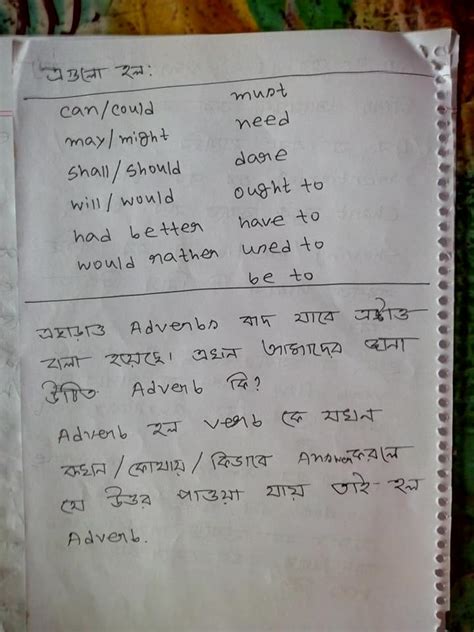 এগুলো হল:
can/could must
may/might need
shall/should dare
will/would ought to
had better have to
would rather used to
be to
এছাড়াও Adverbs বাদ যাবে এটাও
বলা হয়েছে। এখন আমাদের জানা
উচিত Adverb কি?
Adverb হল verb কে যখন
কখন/কোথায়/কিভাবে Answer করলে
যে উত্তর পাওয়া যায় তাই হল
Adverb.